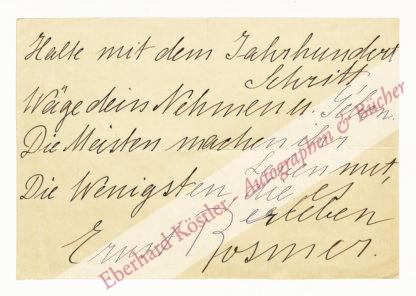 Halte mit dem Jahrhundert
Schritt,
Wäge dein Nehmen u. Geben.
Die Meisten machen das
Leben mit,
Die Wenigsten, die es
erleben
Ernst Rosmer.
Eberhard Köstler, Autographen & Bücher